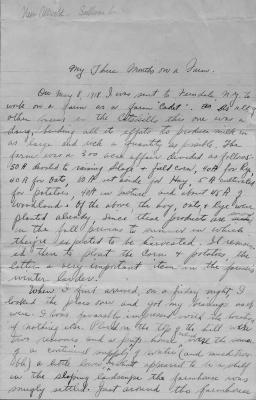 My Three Months on a Farm.
On May 8, 1918 I was sent to Ferndale, N.Y. to
work on a farm as a farm "cadet". As all
other farms in the Catskills this one was a
dairy, bending all its efforts to produce milk in
as large and rich a quantity as possible. The
farm was a 300 acre affair divided as follows:
50 A devoted to raising silage & field corn, 40A for Rye
40 A for oats, for Hay, 5 A cultivated
for potatoes, and about 45 A
woodland. Of the above the hay, oats & rye were
planted already, since these products are sown
in the fall previous to summer in which
they're expected to be harvested. It remained
then to plant the corn & potatoes, the
latter a very important item in the farmer's
winter larder.
When I first arrived, on a friday night I
looked the place over and got my bearings as
were. I was favorably impressed with the
if nothing else. Placed on the top of the hill were
two and a pump house, the
of a continual supply of water (and
) a little lower, appeared to be a shelf
in the sloping landscape the farmhouse was
snugly settled. Just around the farmhouse